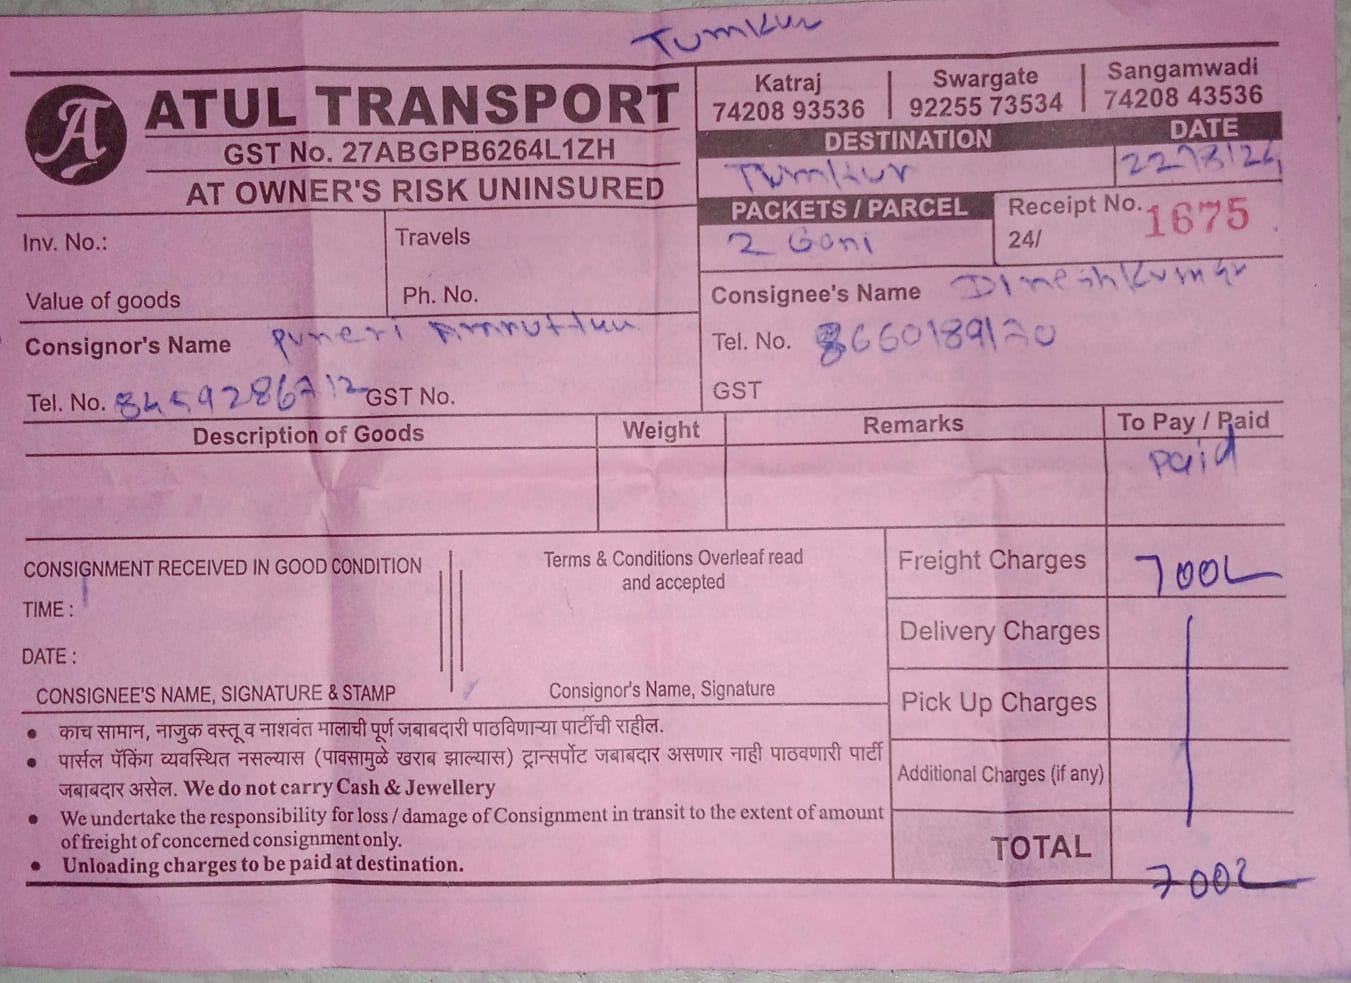 Tumkur
A
ATUL TRANSPORT
GST No. 27ABGPB6264L1ZH
AT OWNER'S RISK UNINSURED
Katraj
74208 93536
Swargate
92255 73534
Sangamwadi
74208 43536
DESTINATION
DATE
Tumkur
PACKETS / PARCEL
2 Goni
Receipt No. 1675
24/
Inv. No.:
Value of goods
Travels
Ph. No.
Consignor's Name Puneri
Tel. No. 8459286712 GST No.
Consignee's Name Dineshkumar
Tel. No. 8660189120
GST
Description of Goods Weight Remarks To Pay / Paid
Paid
CONSIGNMENT RECEIVED IN GOOD CONDITION
TIME :
DATE :
CONSIGNEE'S NAME, SIGNATURE & STAMP
Terms & Conditions Overleaf read
and accepted
Consignor's Name, Signature
Freight Charges 700
Delivery Charges
Pick Up Charges
Additional Charges (if any)
TOTAL 700
• काच सामान, नाजुक वस्तू व नाशवंत मालाची पूर्ण जबाबदारी पाठविणाऱ्या पार्टीची राहील.
• पार्सल पॅकिंग व्यवस्थित नसल्यास (पावसामुळे खराब झाल्यास) ट्रान्सपोर्ट जबाबदार असणार नाही पाठवणारी पार्टी
जबाबदार असेल. We do not carry Cash & Jewellery
• We undertake the responsibility for loss / damage of Consignment in transit to the extent of amount
of freight of concerned consignment only.
• Unloading charges to be paid at destination.